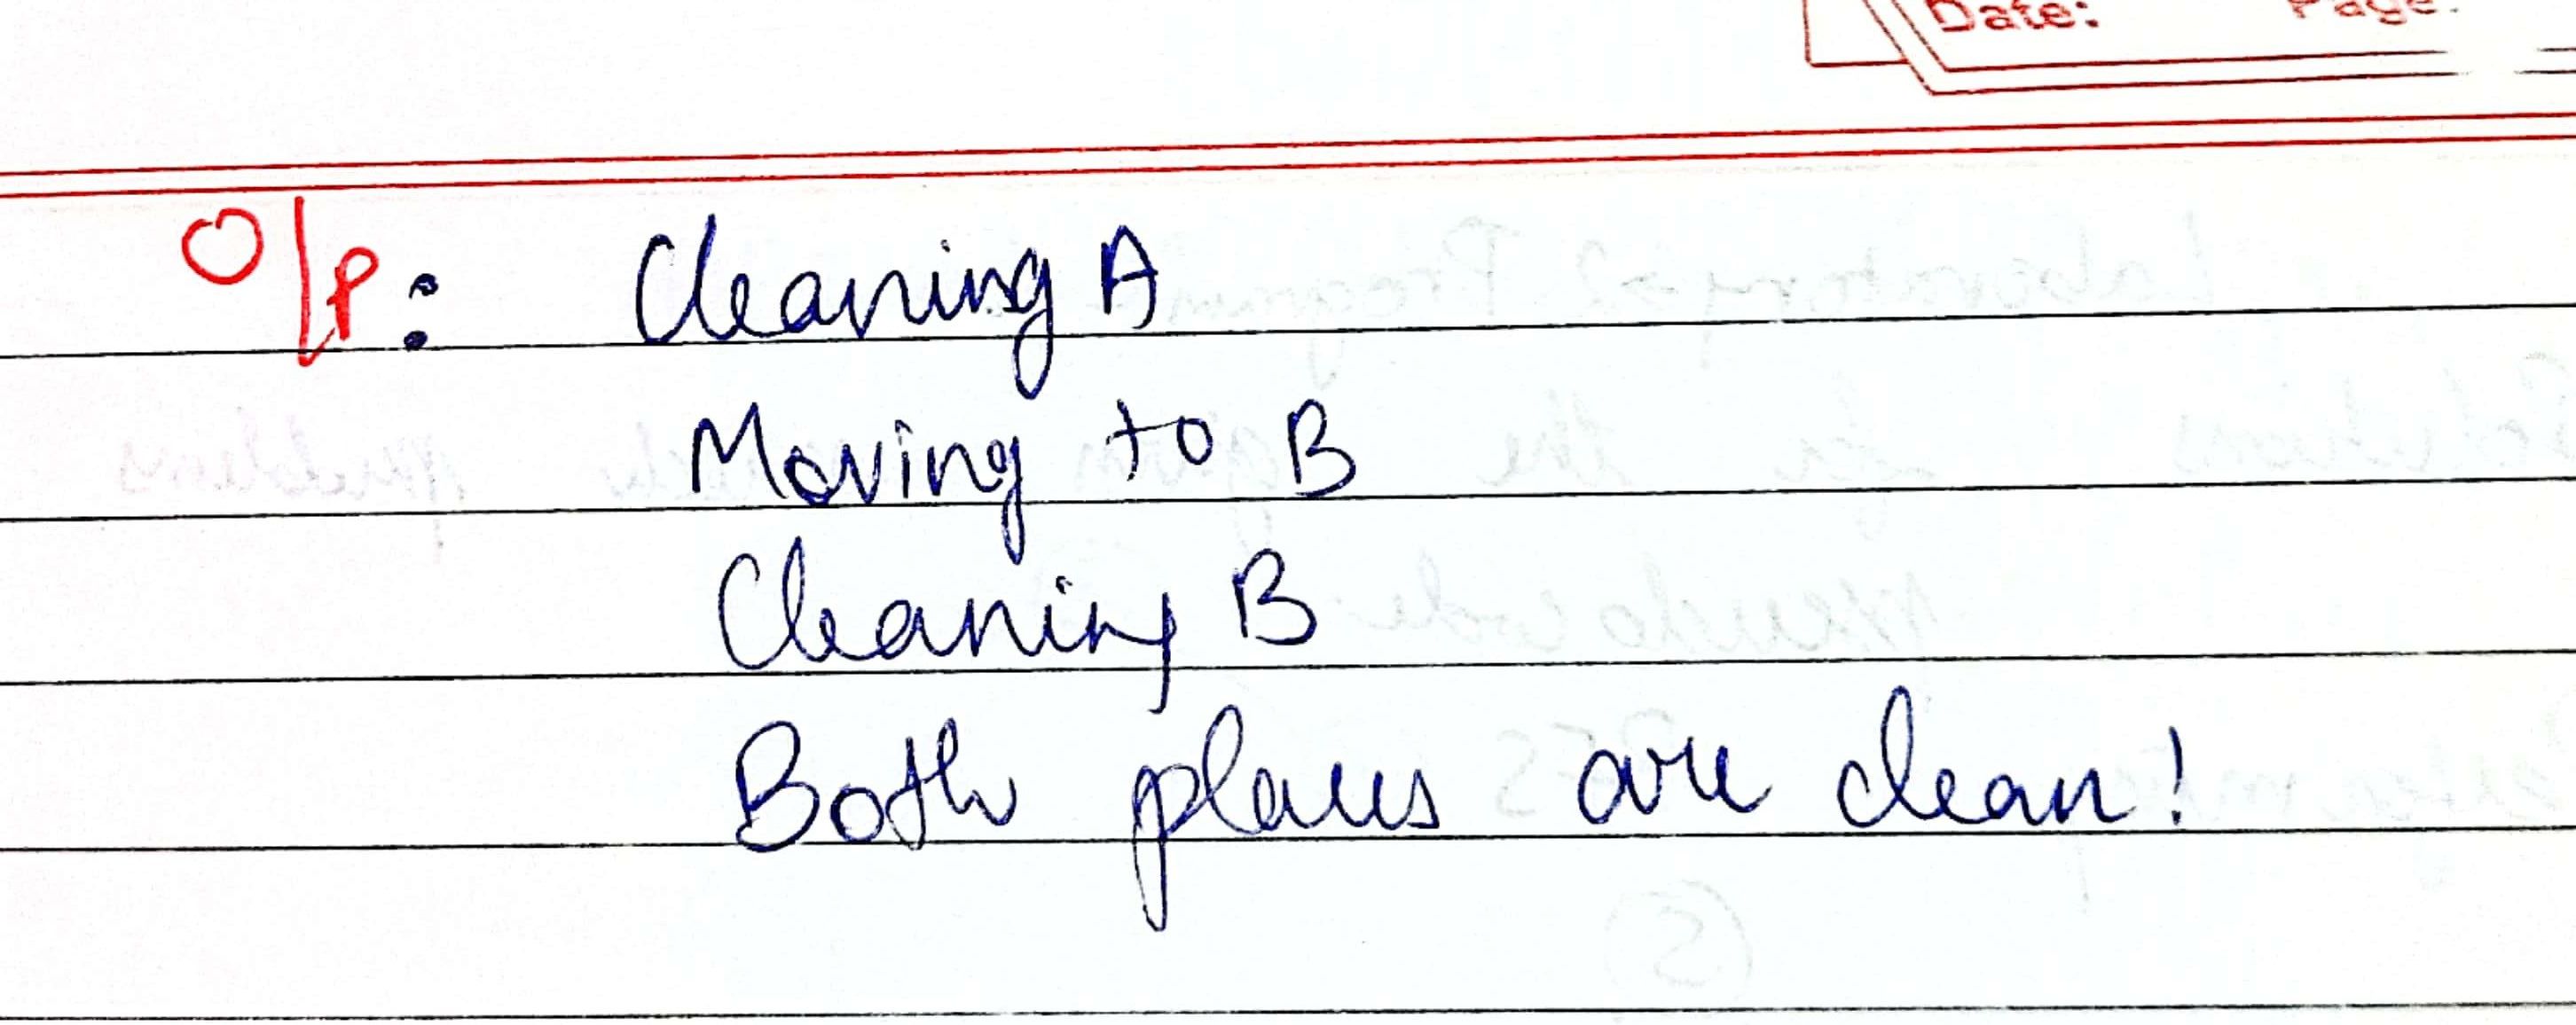 Date: Page:
O/P: Cleaning A
Moving to B
Cleaning B
Both places are clean!